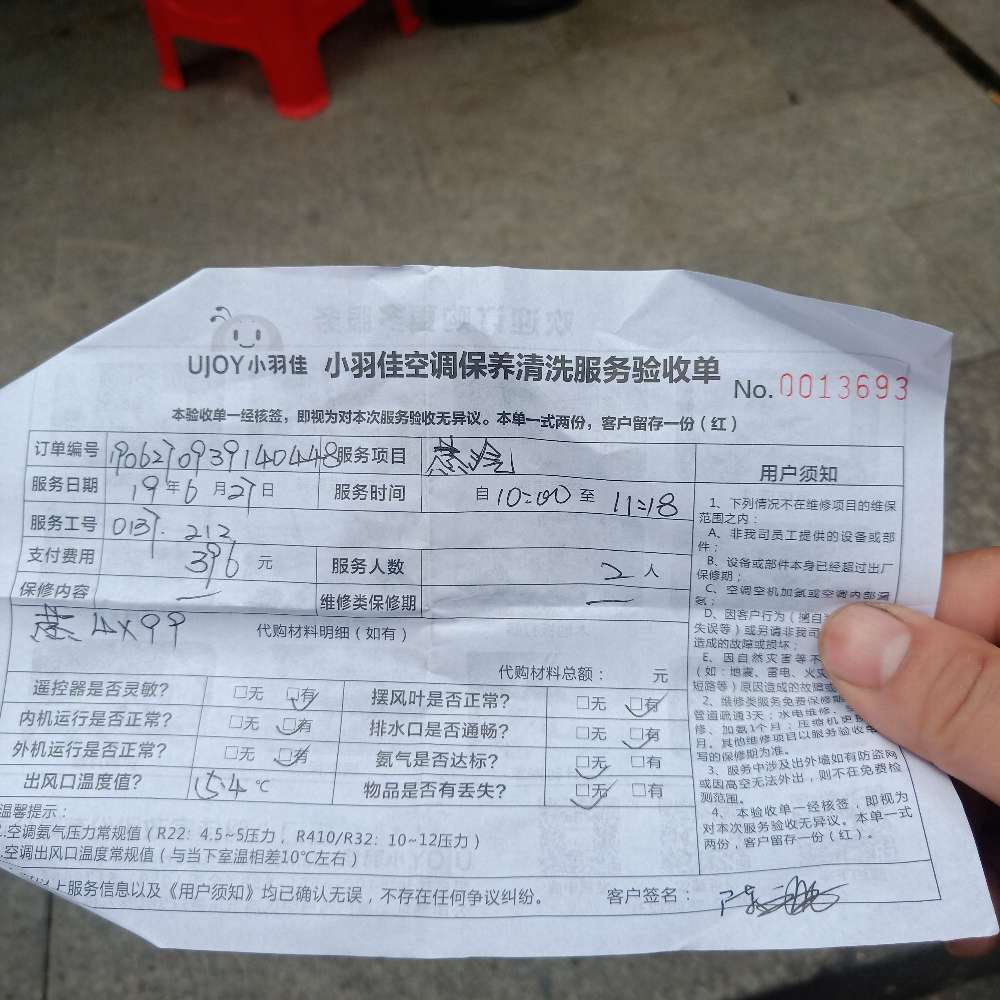 UJOY小羽佳 小羽佳空调保养清洗服务验收单 No.0013693
本验收单一经核签，即视为对本次服务验收无异议。本单一式两份，客户留存一份（红）
订单编号 1906270939140448 服务项目
服务日期 19年6月27日 服务时间 自10:00至11:18
服务工号 0137. 212
支付费用 396 元 服务人数 2人
保修内容 — 维修类保修期 —
蒸 4×99 代购材料明细（如有）
代购材料总额： 元
遥控器是否灵敏？ □无 □有 摆风叶是否正常？ □无 □有
内机运行是否正常？ □无 □有 排水口是否通畅？ □无 □有
外机运行是否正常？ □无 □有 氨气是否达标？ □无 □有
出风口温度值？ 15.4℃ 物品是否有丢失？ □无 □有
温馨提示：
.空调氨气压力常规值（R22：4.5~5压力，R410/R32：10~12压力）
.空调出风口温度常规值（与当下室温相差10℃左右）
以上服务信息以及《用户须知》均已确认无误，不存在任何争议纠纷。 客户签名：
用户须知
1、下列情况不在维修项目的维保
范围之内：
A、非我司员工提供的设备或部
件；
B、设备或部件本身已经超过出厂
保修期；
C、空调空机加氨或空调内部漏
氨；
D、因客户行为（擅自
失误等）或另请非我司
造成的故障或损坏；
E、因自然灾害等不
（如：地震、雷电、火灾
短路等）原因造成的故障或
2、维修类服务免费保修期
管道疏通3天；水电维修、
修、加氨1个月；压缩机更换
月。其他维修项目以服务验收单
写的保修期为准。
3、服务中涉及出外墙如有防盗网
或因高空无法外出，则不在免费检
测范围。
4、本验收单一经核签，即视为
对本次服务验收无异议。本单一式
两份，客户留存一份（红）。